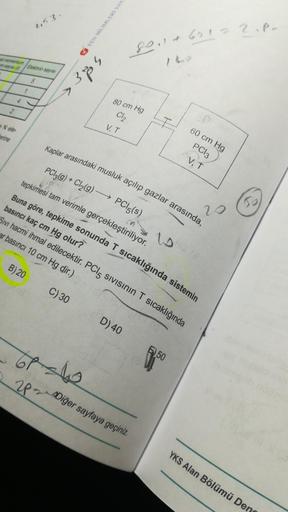 80.1 + 60.1 = 2.P
3p4
Elektron sayısı
5
1
4
2
80 cm Hg
Cl₂
V, T
60 cm Hg
PCl₃
V, T
Kaplar arasındaki musluk açılıp gazlar arasında,
PCl₃(g) + Cl₂(g) ⟶ PCl₅(s)
20
50
10
tepkimesi tam verimle gerçekleştiriliyor.
Buna göre, tepkime sonunda T sıcaklığında sistemin
basıncı kaç cm Hg olur?
Sıvı hacmi ihmal edilecektir. PCl₅ sıvısının T sıcaklığında
ar basıncı 10 cm Hg dir.)
B) 20
C) 30
D) 40
E) 50
6P = 60
2P =
Diğer sayfaya geçiniz.
YKS Alan Bölümü